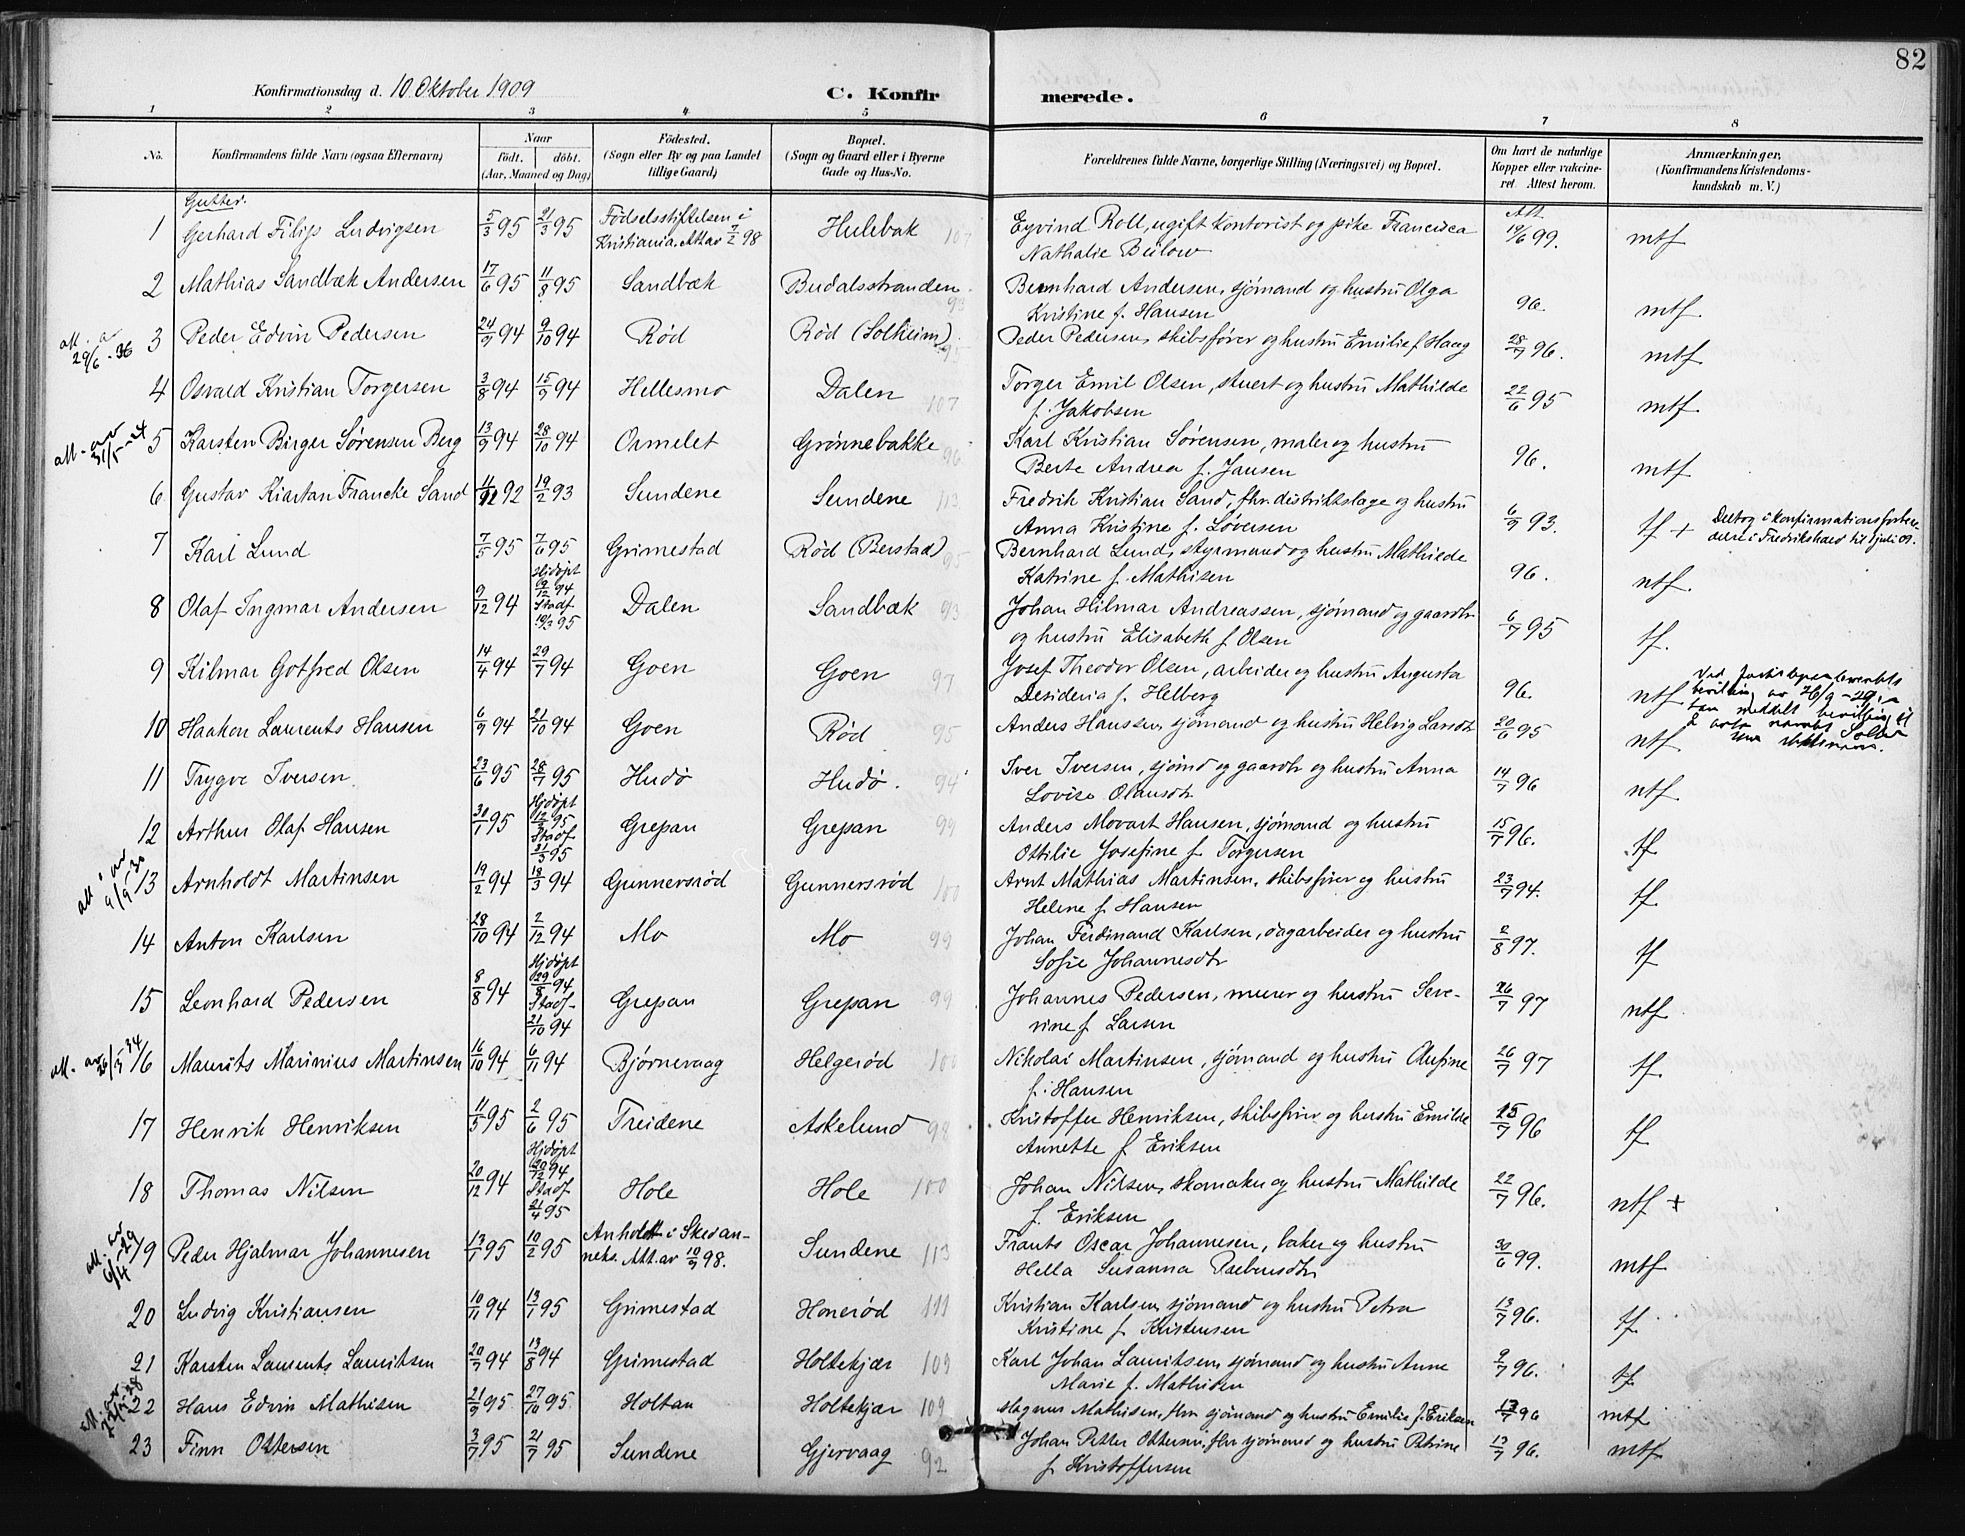 82
Konfirmationsdag d. 10. Oktober 1909 C. Konfir merede.
1 2 3 4 5 6 7 8
No. Konfirmandens fulde Navn (ogsaa Efternavn) Naar født. døbt. (Aar, Maaned og Dag) Fødested. (Sogn eller By og paa Landet tillige Gaard) Bopæl. (Sogn og Gaard eller i Byerne Gade og Hus-No. Forældrenes fulde Navne, borgerlige Stilling (Næringsvei) og Bopæl. Om havt de naturlige Kopper eller vakcineret. Attest herom. Anmærkninger, (Konfirmandens Kristendomskundskab m. V.)
Gutter.
1 Gerhard Filip Ludvigsen 5/3 95 21/3 95 Fødselsstiftelsen i Kristiania. Att av 7/2 98 Hulebak 107 Eyvind Roll, ugift kontorist og pike Francisca Nathalie Bülow Att 14/6 99. mtf
2 Mathias Sandbæk Andersen 17/6 95 11/8 95 Sandbæk Budalsstranden 93 Bernhard Andersen, sjømand og hustru Olga Kristine f. Hansen 96. mtf.
att. av 29/6-36 3 Peder Edvin Pedersen 24/9 94 9/10 94 Rød Rød (Solheim) 95 Peder Pedersen, skibsfører og hustru Emilie f. Haug 28/7 96. mtf
4 Osvald Kristian Torgersen 3/8 94 15/9 94 Hellesmo Dalen 107 Torger Emil Olsen, stuert og hustru Mathilde f. Jakobsen 22/6 95 mtf.
att. av 31/5-24 5 Karsten Birger Sørensen Berg 13/9 94 28/10 94 Ormelet Grønnebakke 96 Karl Kristian Sørensen, maler og hustru Berte Andrea f. Jansen 96. mtf
6 Gustav Kiartan Francke Sand 11/12 92 19/2 93 Sundene Sundene 113 Fredrik Kristian Sand, fhv. distriktslæge og hustru Anna Kristine f. Løversen 6/9 93. tf + Deltog i konfirmationsforberedelse i Fredrikshald til 1 juli 09.
7 Karl Lund 7/5 95 7/6 95 Grimestad Rød (Berstad) 95 Bernhard Lund, styrmand og hustru Mathilde Katrine f. Mathisen 96. ntf.
8 Olaf Ingmar Andersen 9/12 94 Hjdøpt 12 94 Stadf 10/3 95 Dalen Sandbæk 93 Johan Hilmar Andreassen, sjømand og gaardbr og hustru Elisabeth f. Olsen 6/7 95 tf.
9 Hilmar Gotfred Olsen 14/4 94 29/7 94 Goen Goen 97 Josef Theodor Olsen, arbeider og hustru Augusta Desideria f. Helberg 96. ntf
10 Haakon Laurents Hansen 6/9 94 21/10 94 Goen Rød 95 Anders Hanssen, sjømand og hustru Helvig Larsdtr 20/6 95 ntf. Ved bevilling av 26/9-29 meddelt bevilling til
11 Trygve Iversen 23/6 95 28/7 95 Hudø Hudø. 94 Iver Iversen, sjømd og gaardbr og hustru Anna Lovise Olausdtr 14/7 96 ntf.
12 Arthur Olaf Hansen 30/1 95 Hjdøpt 95 Stadf 31/3 95 Grepan Grepan 99 Anders Movart Hansen, sjømand og hustru Ottilie Josefine f. Torgersen 15/7 96. tf
att. av 9/9 30 13 Arnholdt Martinsen 19/2 94 18/3 94 Gunnersrød Gunnersrød 100 Arnt Mathias Martinsen, skibsfører og hustru Helene f. Hansen 23/7 94. tf
14 Anton Karlsen 28/10 94 2/12 94 Mo Mo 99 Johan Ferdinand Karlsen, dagarbeider og hustru Sofie Johannesdtr 2/8 97. tf
15 Leonhard Pedersen 8/8 94 Hjdøpt 29/8 94 Stadf 21/10 94 Grepan Grepan 99 Johannes Pedersen, murer og hustru Severine f. Larsen 26/7 97 ntf.
att. av 26/5 34 16 Maurits Marinius Martinsen 16/10 94 6/11 94 Bjørnevaag Helgerød 100 Nikolai Martinsen, sjømand og hustru Olufine f. Hansen 26/7 97 tf.
17 Henrik Henriksen 11/5 95 2/6 95 Treidene Askelund 98 Kristoffer Henriksen, skibsfører og hustru Emilde Annette f. Eriksen 15/7 96 tf
18 Thomas Nilsen 20/12 94 Hjdøpt 20/12 94 Stadf 21/4 95 Hole Hole 100 Johan Nilsen, skomaker og hustru Mathilde f. Eriksen 22/7 96. ntf +
att. av 6/4-29 19 Peder Hjalmar Johannesen 13/1 95 10/2 95 Anholdt i Skedanneks. Att. av 10/9 98. Sundene 113 Frants Oscar Johannesen, baker og hustru Hella Susanna 30/6 99. mtf
20 Ludvig Kristiansen 10/11 94 13/1 95 Grimestad Honerød 111 Kristian Karlsen, sjømand og hustru Petra Kristine f. Kristensen 13/7 96. tf
21 Karsten Laurents Lauritsen 20/7 94 13/8 94 Grimestad Holtekjær 109 Karl Johan Lauritsen, sjømand og hustru Anne Marie f. Mathisen 9/7 96. tf
att. av 22 Hans Edvin Mathisen 21/9 95 27/10 95 Holtan Holtekjær 109 Magnus Mathisen, fhv sjømand og hustru Emilie f. Eriksen 13/7 96 mtf
23 Finn Ottersen 3/7 95 21/7 95 Sundene Gjervaag 92 Johan Petter Ottersen, fhv sjømand og hustru Petrine f Kristoffersen 13/7 96. mtf.